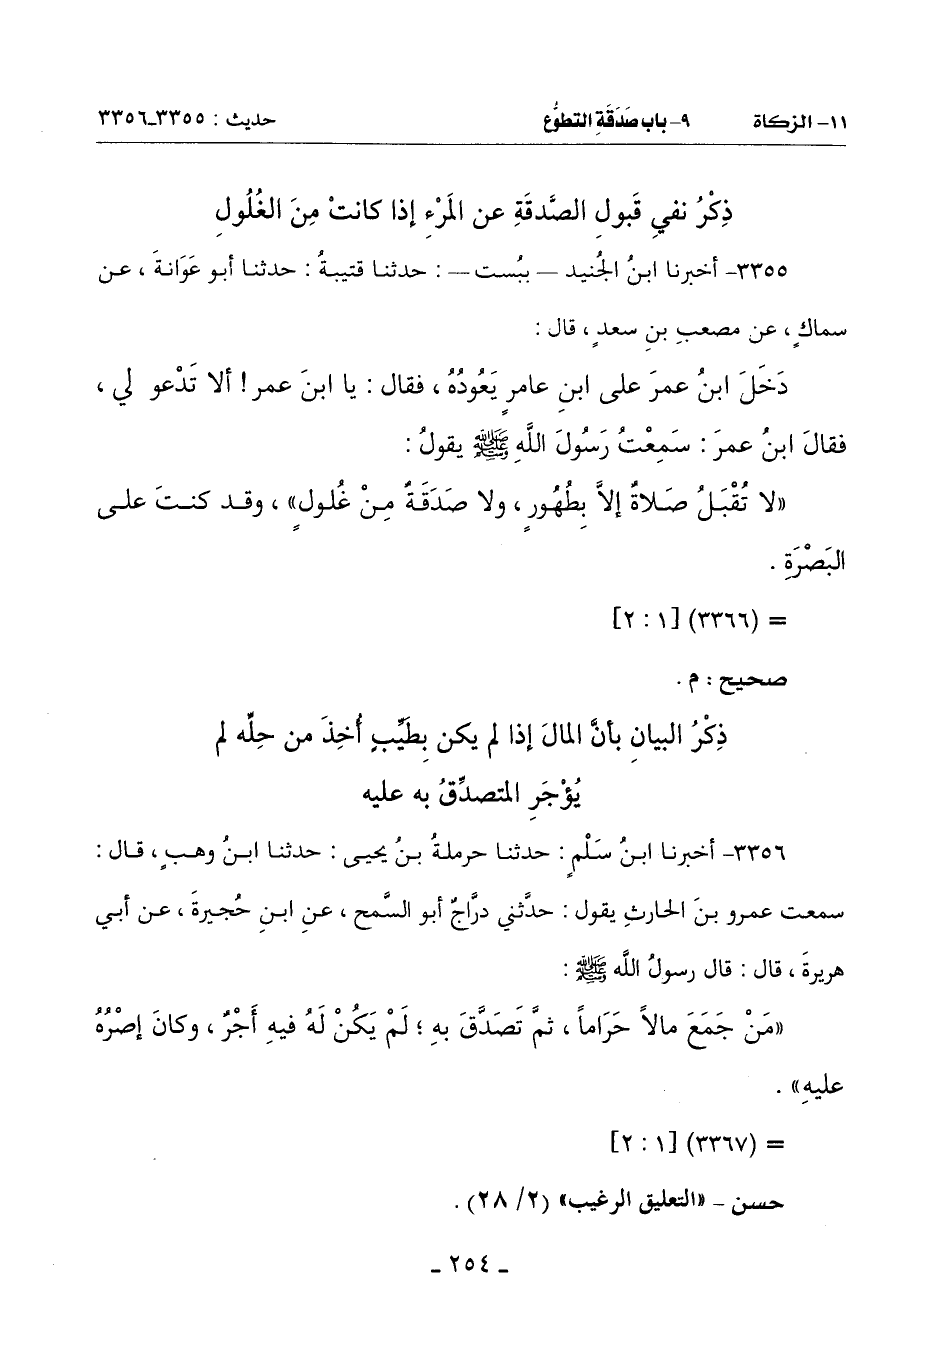 ١١- الزكاة ٩- باب صَدَقَةِ التطوُّع حديث : ٣٣٥٥-٣٣٥٦
ذِكْرُ نفي قَبولِ الصَّدقَةِ عن المَرْءِ إذا كانتْ مِنَ الغُلُولِ
٣٣٥٥- أخبرنا ابنُ الجُنيد – ببُست – : حدثنا قتيبةُ : حدثنا أبو عَوَانةَ ، عن
سماكٍ ، عن مصعبِ بنِ سعدٍ ، قال :
دَخَلَ ابنُ عمرَ على ابنِ عامرٍ يَعُودُهُ ، فقال : يا ابنَ عمر ! ألا تَدْعو لي ،
فقالَ ابنُ عمرَ : سَمِعْتُ رَسُولَ اللَّهِ ﷺ يقولُ :
«لا تُقْبَلُ صَلاةٌ إلاَّ بِطُهُورٍ ، ولا صَدَقَةٌ مِنْ غُلُولٍ» ، وقد كنتَ على
البَصْرَةِ .
= (٣٣٦٦) [١ : ٢]
صحيح : م .
ذِكْرُ البيانِ بأنَّ المالَ إذا لم يكن بِطَيِّبٍ أُخِذَ من حِلِّه لم
يُؤْجَرِ المتصدِّقُ به عليه
٣٣٥٦- أخبرنا ابنُ سَلْمٍ : حدثنا حرملةُ بنُ يحيى : حدثنا ابنُ وهبٍ ، قال :
سمعت عمرو بنَ الحارثِ يقول : حدَّثني درَّاجٌ أبو السَّمح ، عنِ ابنِ حُجيرةَ ، عن أبي
هريرةَ ، قال : قال رسولُ اللَّه ﷺ :
«مَنْ جَمَعَ مالاً حَرَاماً ، ثمَّ تَصَدَّقَ بهِ ؛ لَمْ يَكُنْ لَهُ فيهِ أَجْرٌ ، وكانَ إصْرُهُ
عليهِ» .
= (٣٣٦٧) [١ : ٢]
حسن – «التعليق الرغيب» (٢/ ٢٨) .
- ٢٥٤ -